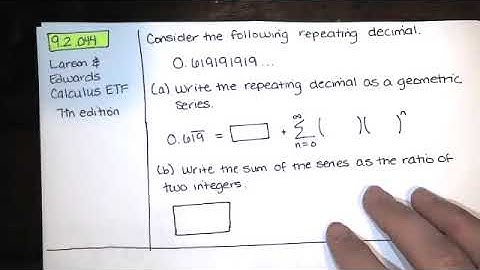 9.2.044
Larson &
Edwards
Calculus ETF
7th edition
Consider the following repeating decimal.
0.619191919...
(a) Write the repeating decimal as a geometric
series.
0.6\overline{19} = □ + \sum_{n=0}^{∞} ( )( )^n
(b) Write the sum of the series as the ratio of
two integers.